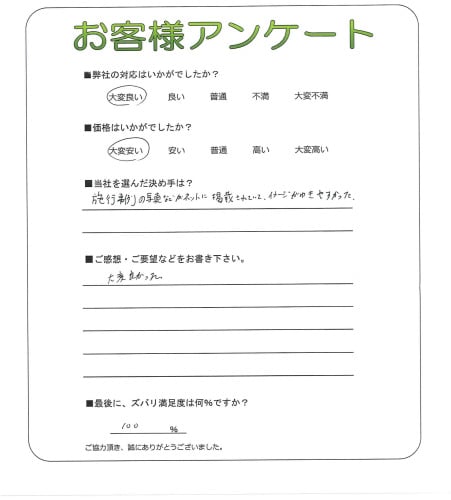 お客様アンケート
■弊社の対応はいかがでしたか？
大変良い 良い 普通 不満 大変不満
■価格はいかがでしたか？
大変安い 安い 普通 高い 大変高い
■当社を選んだ決め手は？
施行事例の写真などがネットに掲載されていて、イメージがわきやすかった。
■ご感想・ご要望などをお書き下さい。
大変良かった。
■最後に、ズバリ満足度は何％ですか？
100 ％
ご協力頂き、誠にありがとうございました。